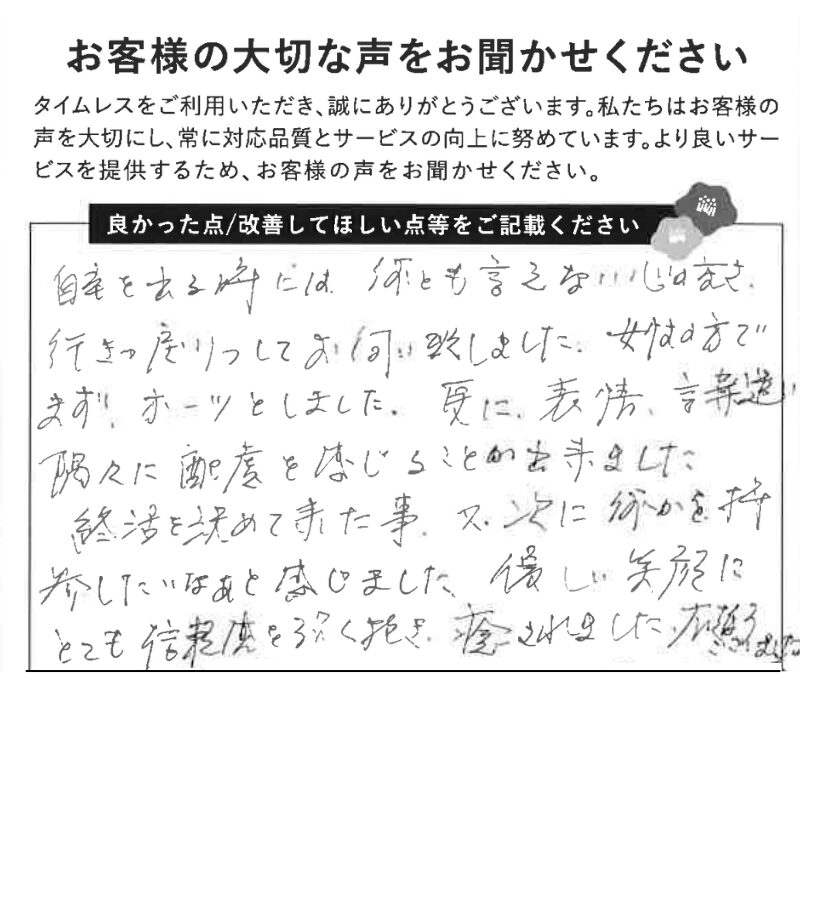 お客様の大切な声をお聞かせください
タイムレスをご利用いただき、誠にありがとうございます。私たちはお客様の
声を大切にし、常に対応品質とサービスの向上に努めています。より良いサー
ビスを提供するため、お客様の声をお聞かせください。
良かった点/改善してほしい点等をご記載ください
自宅を出る時には、何とも言えない
行きつ戻りつしてお伺い致しました。女性の方で
まず、ホーッとしました。更に、表情、言葉遣い
隅々に配慮を感じることが出来ました
終活を決めて来た事、又、次に何かを持
参したいなあと感じました。優しい笑顔に
とても信頼度を強く抱き、癒されました。有難う
ございました